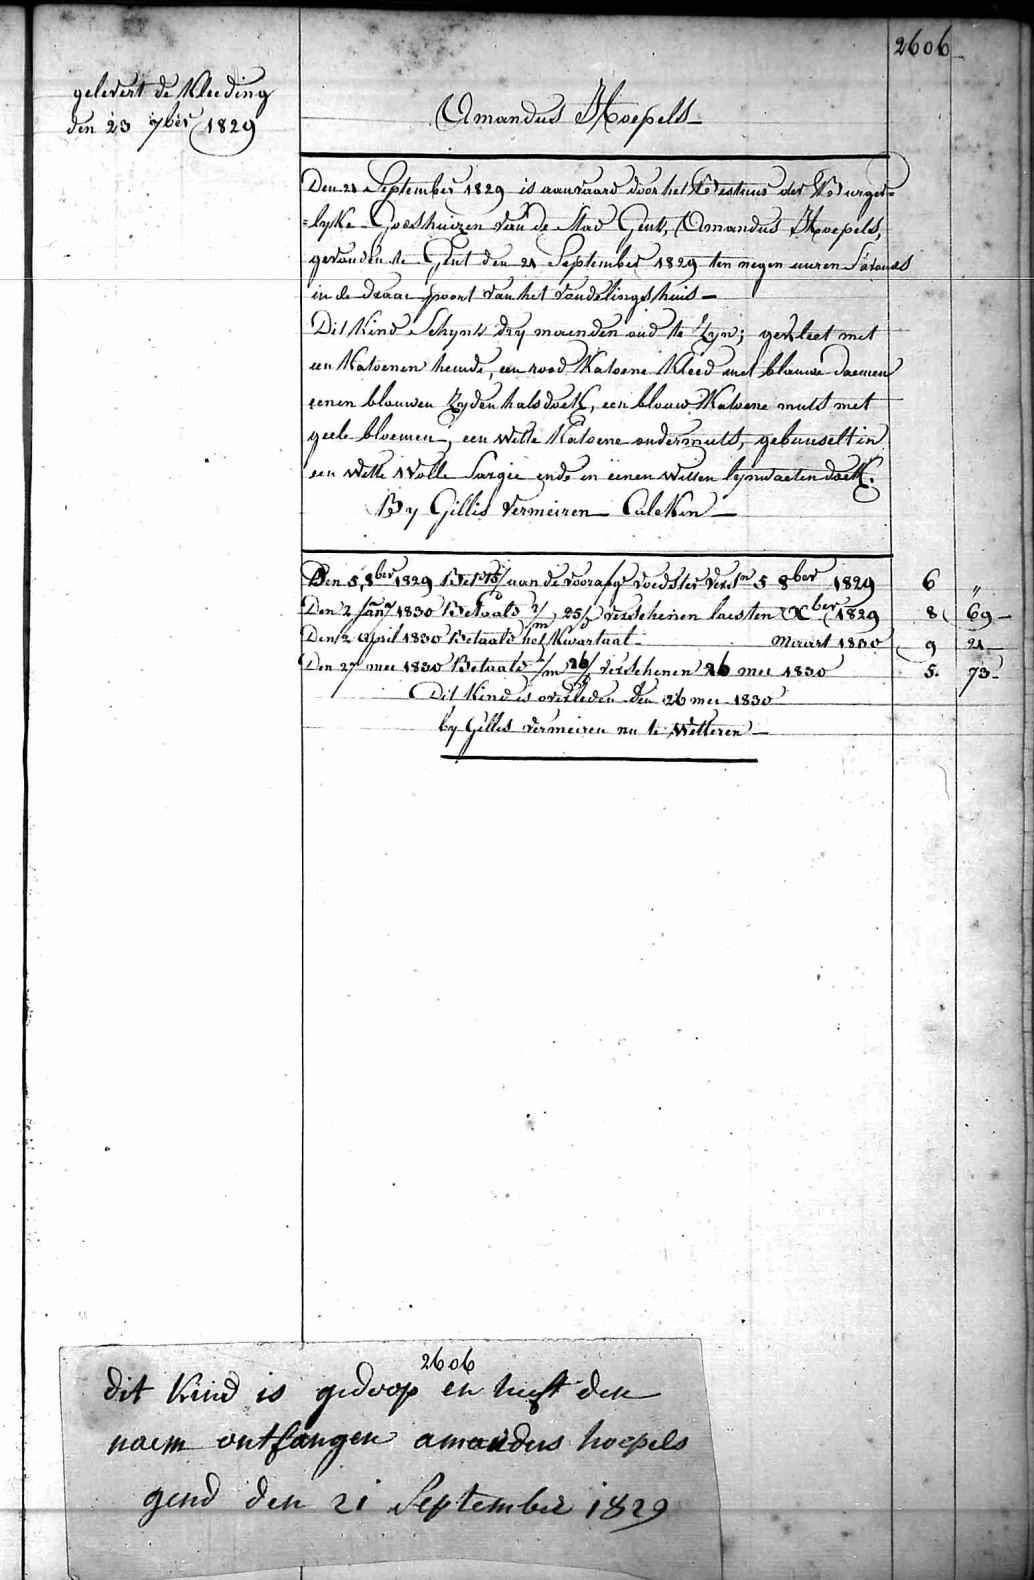 2606
gelevert de Kleeding
den 23 7ber 1829
Amandus Hoepels
Den 21 September 1829 is aanvaard door het Bestuur der Burger=
=lyke Godshuizen van de Stad Gent, Amandus Hoepels,
gevonden te Gent den 21 September 1829 ten negen uuren S'avonds
in de draai poort van het vondelingshuis
Dit Kind Schynt dry maenden oud te Zyn; gekleet met
een Katoenen hemde, een rood Katoene Kleed met blauwe
eenen blauwen Zyden halsdoek, een blouw Katoene muts met
geele bloemen, een witte Katoene ondermuts, gebuuselt in
een witte wolle Sargie ende in eenen witten lynwaeten doek.
By Gillis Vermeiren Calcken
Den 5 8ber 1829 aan de voedster 5 8ber 1829 6 "
Den 2 Janry 1830 Betaald 2/m 25/d verschenen laesten Xber 1829 8 69
Den 2 April 1830 Betaald het Kwartaal Maart 1830 9 21
Den 27 mei 1830 Betaald /m 26/d verschenen 26 mei 1830 5. 73
Dit Kind is overleden den 26 mei 1830
by Gillis Vermeiren nu te Wetteren
2606
dit kind is gedoop en heeft den
naem ontfangen amandus hoepels
gend den 21 September 1829